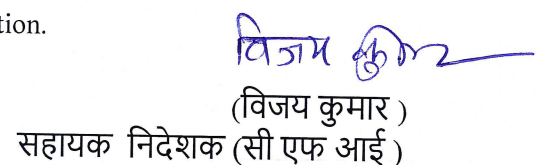 tion.
विजय कुमार
(विजय कुमार )
सहायक निदेशक (सी एफ आई )